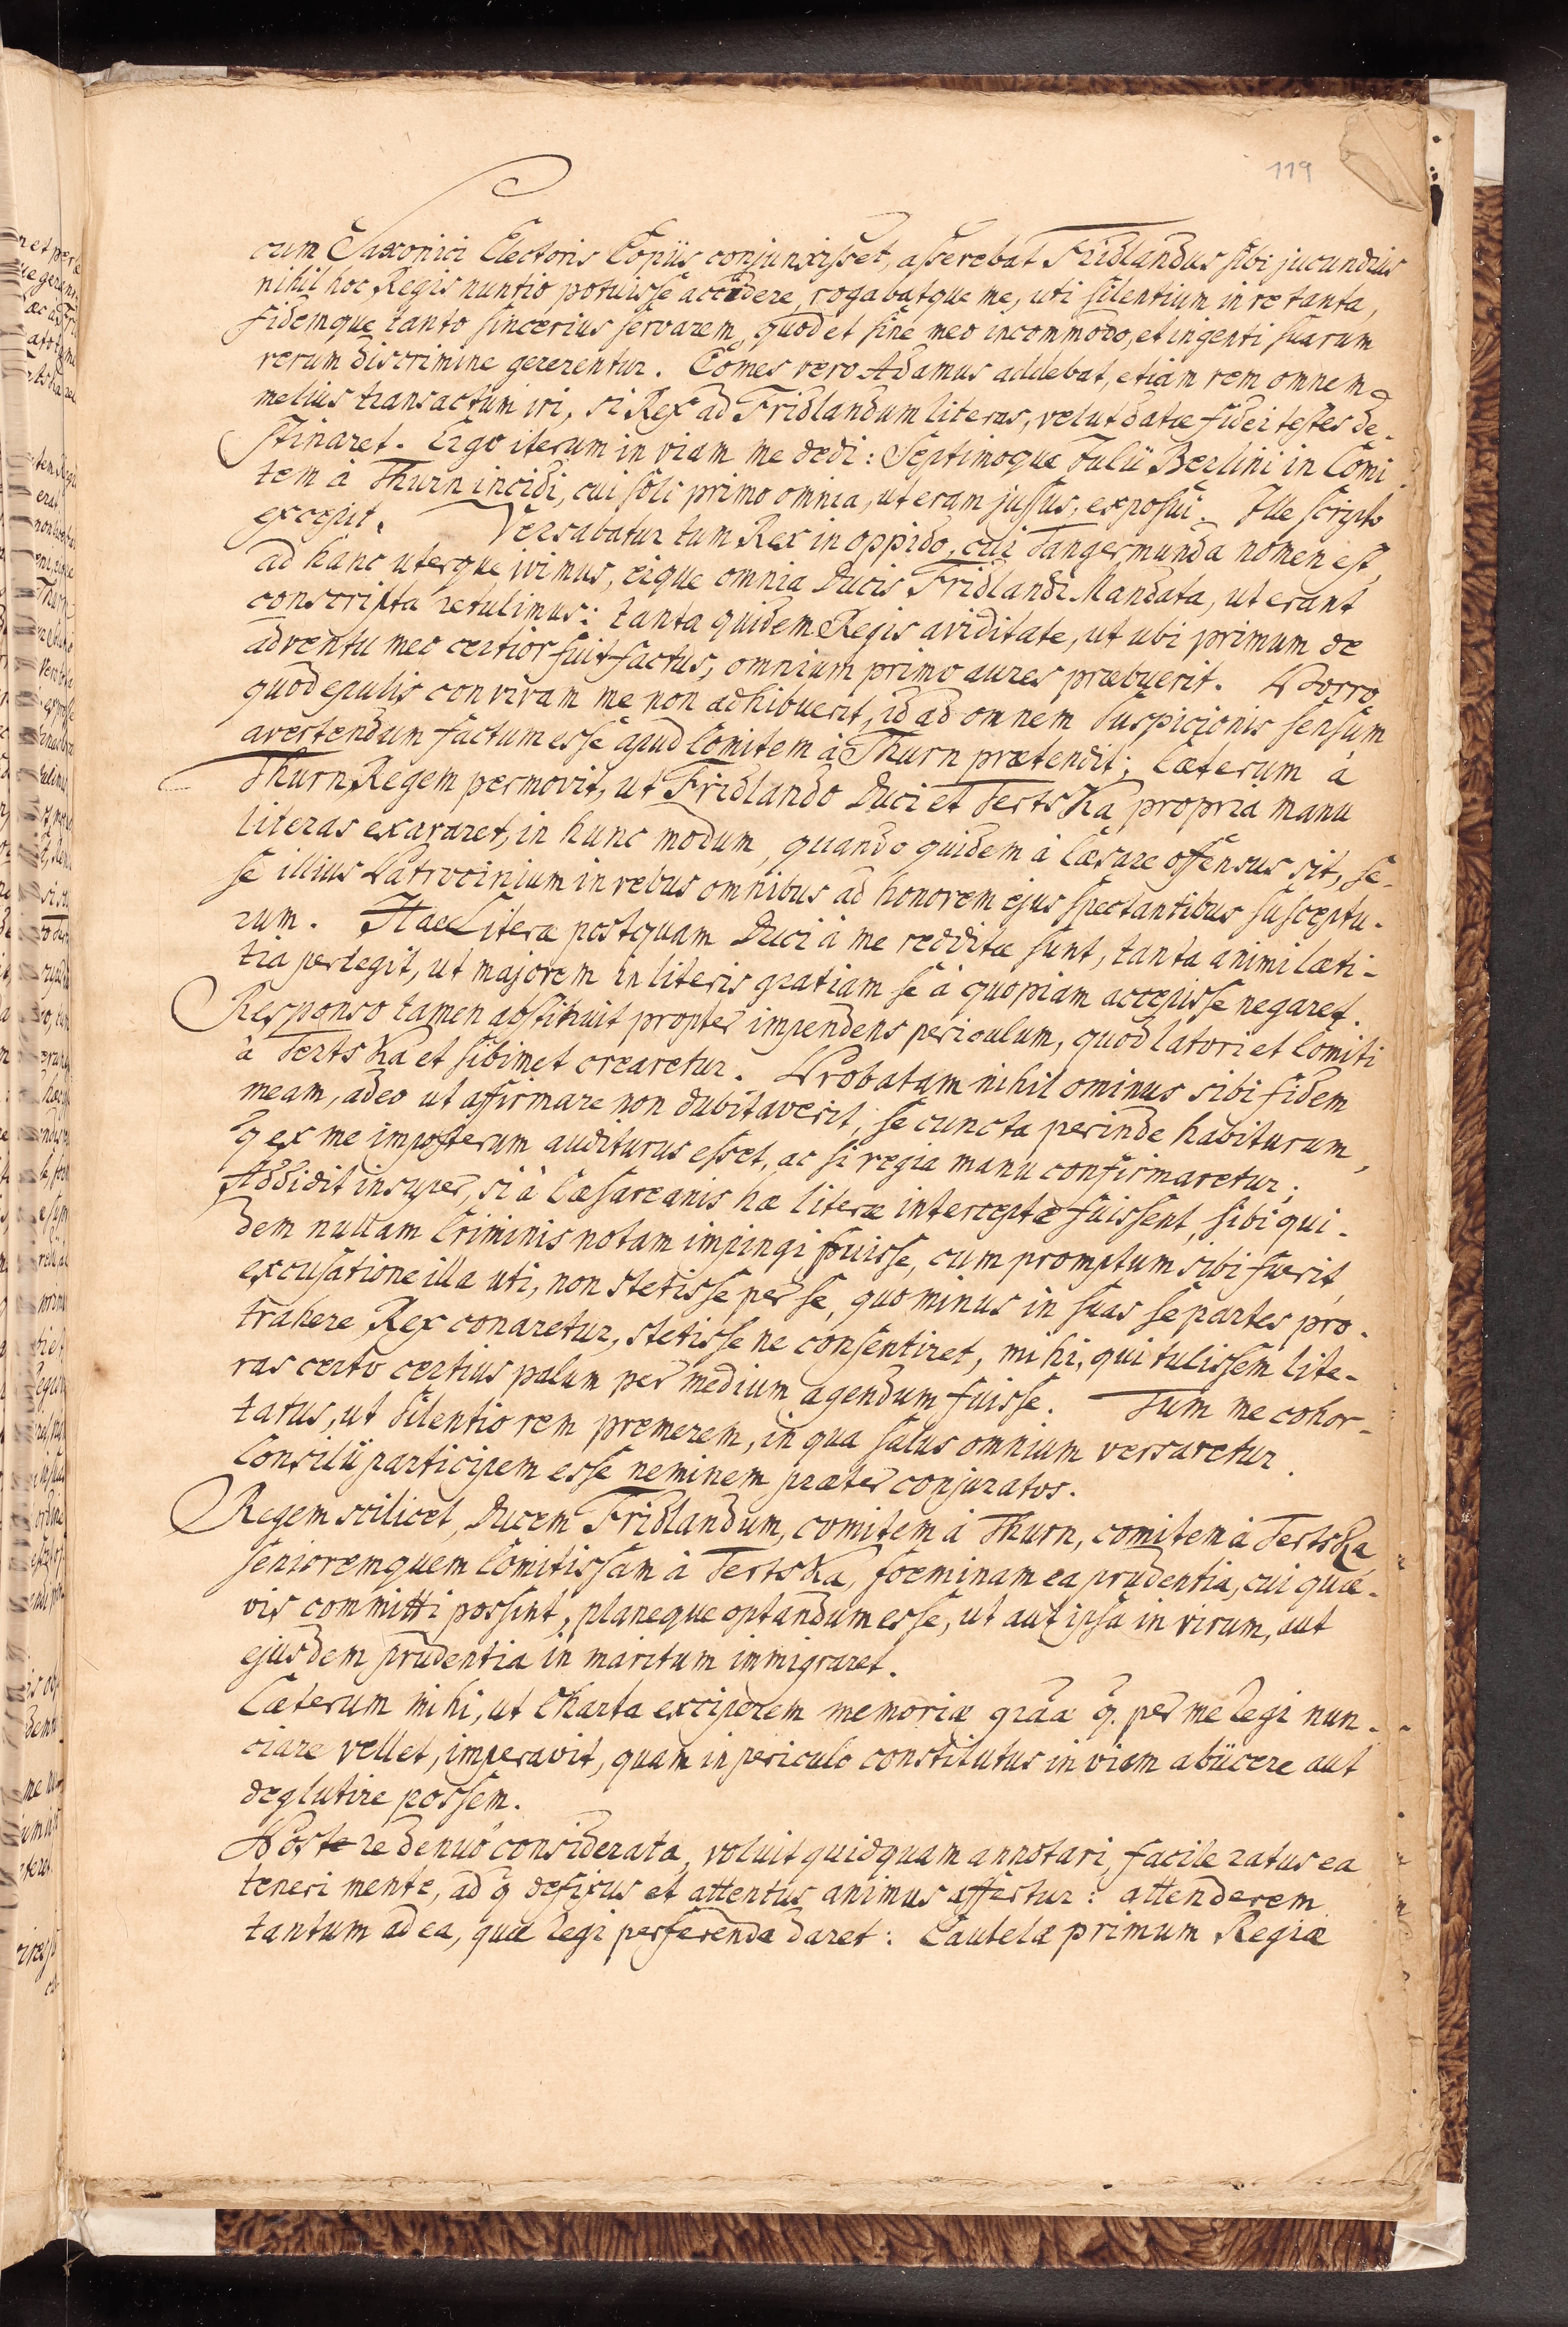 119
cum Saxonici Electoris Copiis conjunxisset, asserebat Fridlandus sibi jucundius
nihil hoc Regis nuntio potuisse accidere, rogabatque me, uti silentium in re tanta,
fidemque tanto sincerius servarem, quod et sine meo incommodo, et ingenti suarum
rerum discrimine gererentur. Comes vero Adamus addebat, etiam rem omnem
melius transactum iri, si Rex ad Fridlandum literas, velut datae fidei testes de-
stinaret. Ergo iterum in viam me dedi: Septimoque Julii Berlini in Comi-
tem à Thurn incidi, cui soli primo omnia, ut eram jussus, exposui. Ille scripto
excepit. Versabatur tum Rex in oppido, cui Tangermunda nomen est,
ad hanc uterque ivimus, eique omnia Ducis Fridlandi Mandata, ut erant
conscripta retulimus: tanta quidem Regis aviditate, ut ubi primum de
adventu meo certior fuit factus, omnium primo aures praebuerit. Porro
quod epulis convivam me non adhibuerit, id ad omnem suspicionis sensum
avertendum factum esse apud Comitem à Thurn praetendit; Caeterum à
Thurn, Regem permovit, ut Fridlando Duci et Tertska propria manu
literas exararet, in hunc modum, quando quidem à Caesare offensus sit, se-
se illius Patrocinium in rebus omnibus ad honorem ejus spectantibus susceptu-
rum. Hae Literae postquam Duci à me redditae sunt, tanta animi laeti-
tia perlegit, ut majorem in literis gratiam se à quopiam accepisse negaret.
Responso tamen abstinuit propter impendens periculum, quod latori et Comiti
à Tertska et sibimet crearetur. Probatam nihil ominus sibi fidem
meam, adeo ut affirmare non dubitaverit, se cuncta perinde habiturum,
q ex me imposterum auditurus esset, ac si regia manu confirmaretur;
Addidit insuper, si à Caesareanis hae literae interceptae fuissent, sibi qui-
dem nullam Criminis notam impingi fuisse, cum promptum sibi fuerit,
excusatione illa uti, non stetisse per se, quo minus in suas se partes pro-
trahere Rex conaretur, stetisse ne consentiret, mihi, qui tulissem lite-
ras certo certius palum per medium agendum fuisse. Tum me cohor-
tatus, ut silentio rem premerem, in qua salus omnium versaretur.
Consilii participem esse neminem praeter conjuratos.
Regem scilicet, Ducem Fridlandum, comitem à Thurn, comitem à Tertska
senioremquem Comitissam à Tertska, foeminam ea prudentia, cui quae-
vis committi possint, planeque optandum esse, ut aut ipsa in virum, aut
ejusdem prudentia in maritum immigraret.
Caeterum mihi, ut Charta exciperem memoriae graa q. per me Regi nun-
ciare vellet, imperavit, quam in periculo constitutus in viam abiicere aut
deglutire possem.
Post re denuo considerata, voluit quidquam annotari, facile ratus ea
teneri mente, ad q defixus et attentus animus affertur: attenderem
tantum ad ea, quae Regi perferenda daret: Cautelae primum Regiae